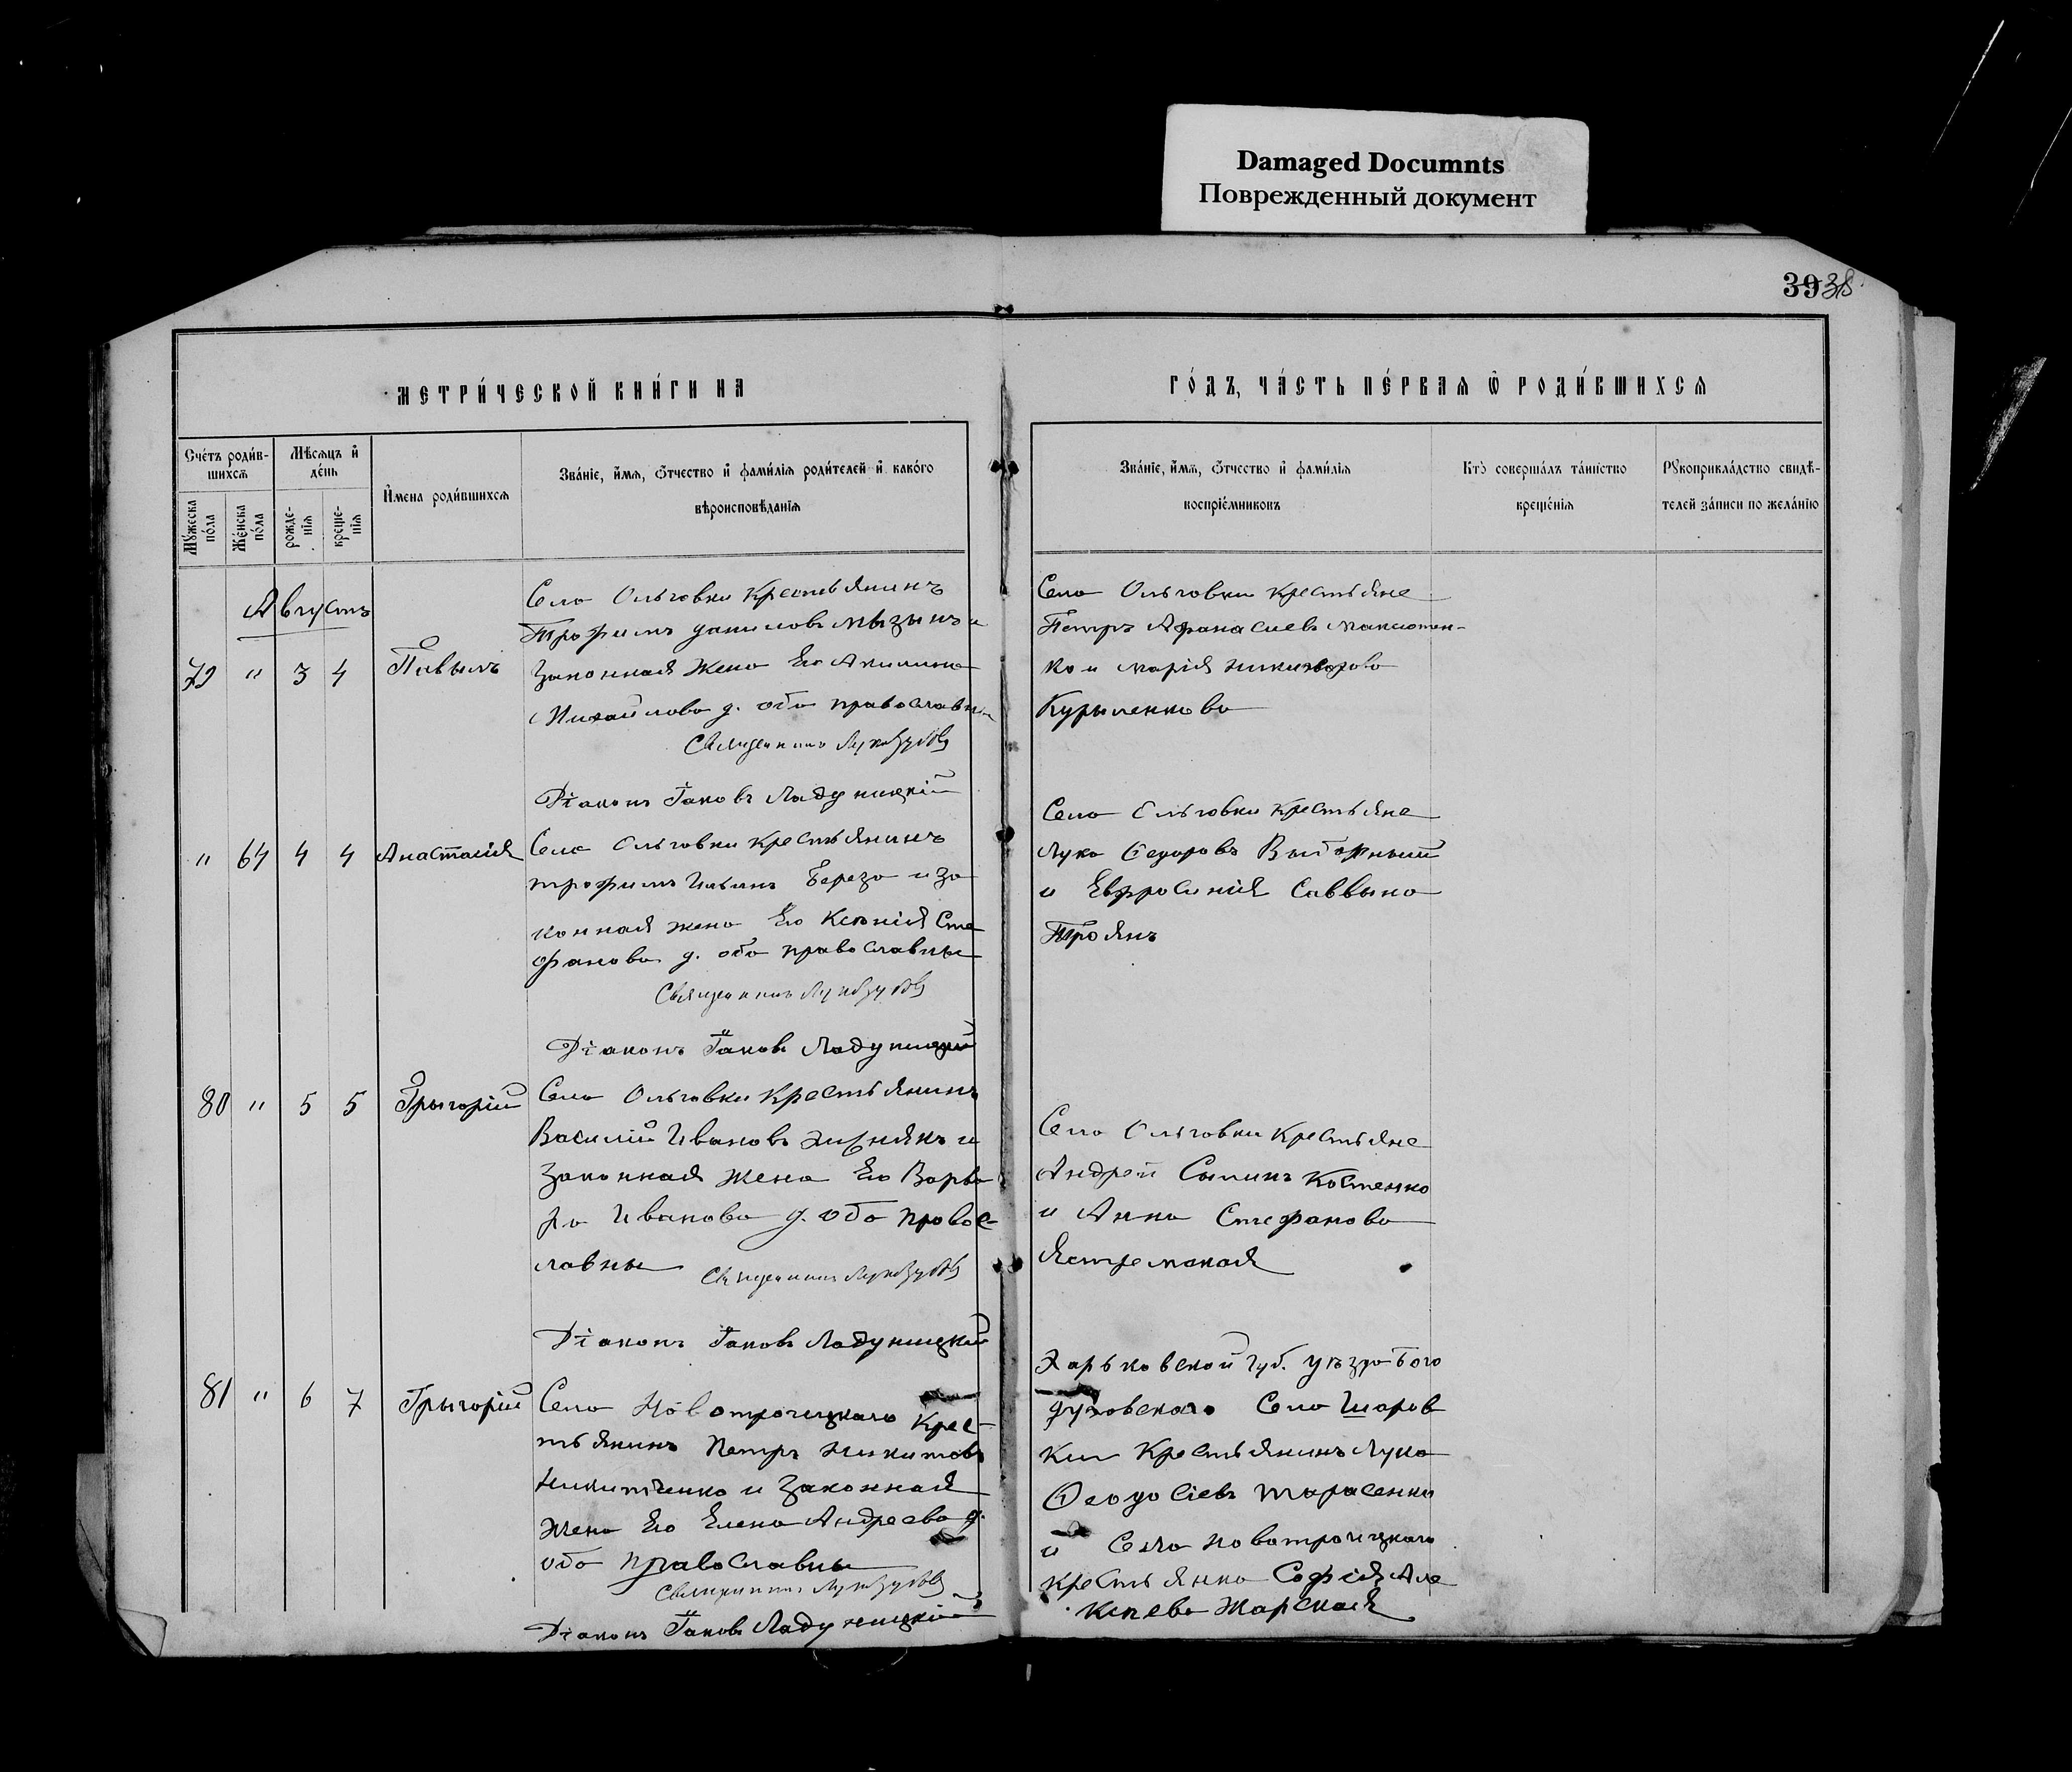 Damaged Documnts
Поврежденный документ
39 38
МЕТРИ́ЧЕСКОЙ КНИ́ГИ НА
ГО́ДЪ, ЧА́СТЬ ПЕ́РВАЯ Ѿ РОДИ́ВШИХСЯ
Сче́тъ роди́в-
шихсѧ
Мѣ́сѧцъ и҆
де́нь
И҆мена роди́вшихсѧ
Зва́нїе, и҆́мѧ, ѻ҆́тчество и҆ фами́лїѧ роди́телей и҆ како́го
вѣроисповѣ́данїѧ
Зва́нїе, и҆́мѧ, ѻ҆́тчество и҆ фами́лїѧ
воспрїе́мниковъ
Кто̀ соверша́лъ та́инство
креще́нїѧ
Рꙋкоприкла́дство свидѣ́-
телей за́писи по жела́нїю
Мꙋ́жеска
по́ла
Же́нска
по́ла
рожде́-
нїѧ
креще́-
нїѧ
Августъ
79 " 3 4
Село Ольговки Крестьянинъ
Трофимъ Данилов и
Законная Жена Его Акилина
Михайлова д. оба православн
Священникъ
Діаконъ Іаковъ Ладуницкій
Село Ольговки Крестьяне
Петръ Афанасиевъ Максимен-
ко и Марія Никифорова
Куриленкова
" 64 4 4 Анастасія
Село Ольговки Крестьянинъ
Трофимъ Ильинъ Береза и за
конная жена Его Ксенія Сте
фанова д. оба православны
Священникъ
Діаконъ Іаковъ Ладуницкій
Село Ольговки Крестьяне
Лука Федоровъ Выборный
и Евфросинія Саввина
Троянъ
80 " 5 5 Григорій
Село Ольговки Крестьянинъ
Василій Ивановъ и
Законная Жена Его Варва
ра Иванова д. оба правос-
лавны Священникъ
Діаконъ Іаковъ Ладуницкій
Село Ольговки Крестьяне
Андрей Силинъ Костенко
и Анна Стефанова
Ястремская
81 " 6 7 Григорій
Село Новотроицкаго Крес-
тьянинъ Петръ Никитовъ
Никитченко и Законная
Жена Его Елена Андреева д.
оба православны
Священникъ
Діаконъ Іаковъ Ладуницкій
Харьковской Губ. Уѣзда Бого
духовскаго Село Шаров
ки Крестьянинъ Лука
Феодосіевъ Тарасенко
и Села Новотроицкаго
крестьянка Софія Але
Жарская